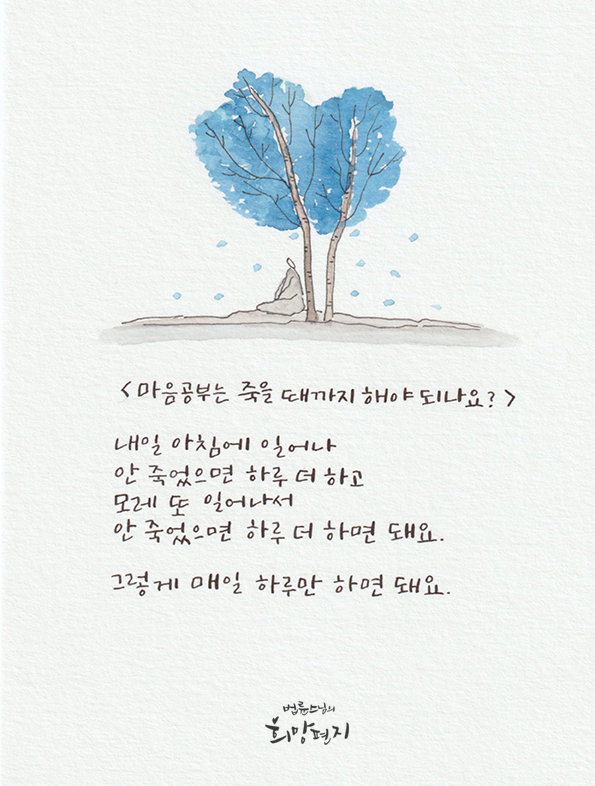 <마음공부는 죽을 때까지 해야 되나요?>
내일 아침에 일어나
안 죽었으면 하루 더 하고
모레 또 일어나서
안 죽었으면 하루 더 하면 돼요.
그렇게 매일 하루만 하면 돼요.
법륜스님의
희망편지